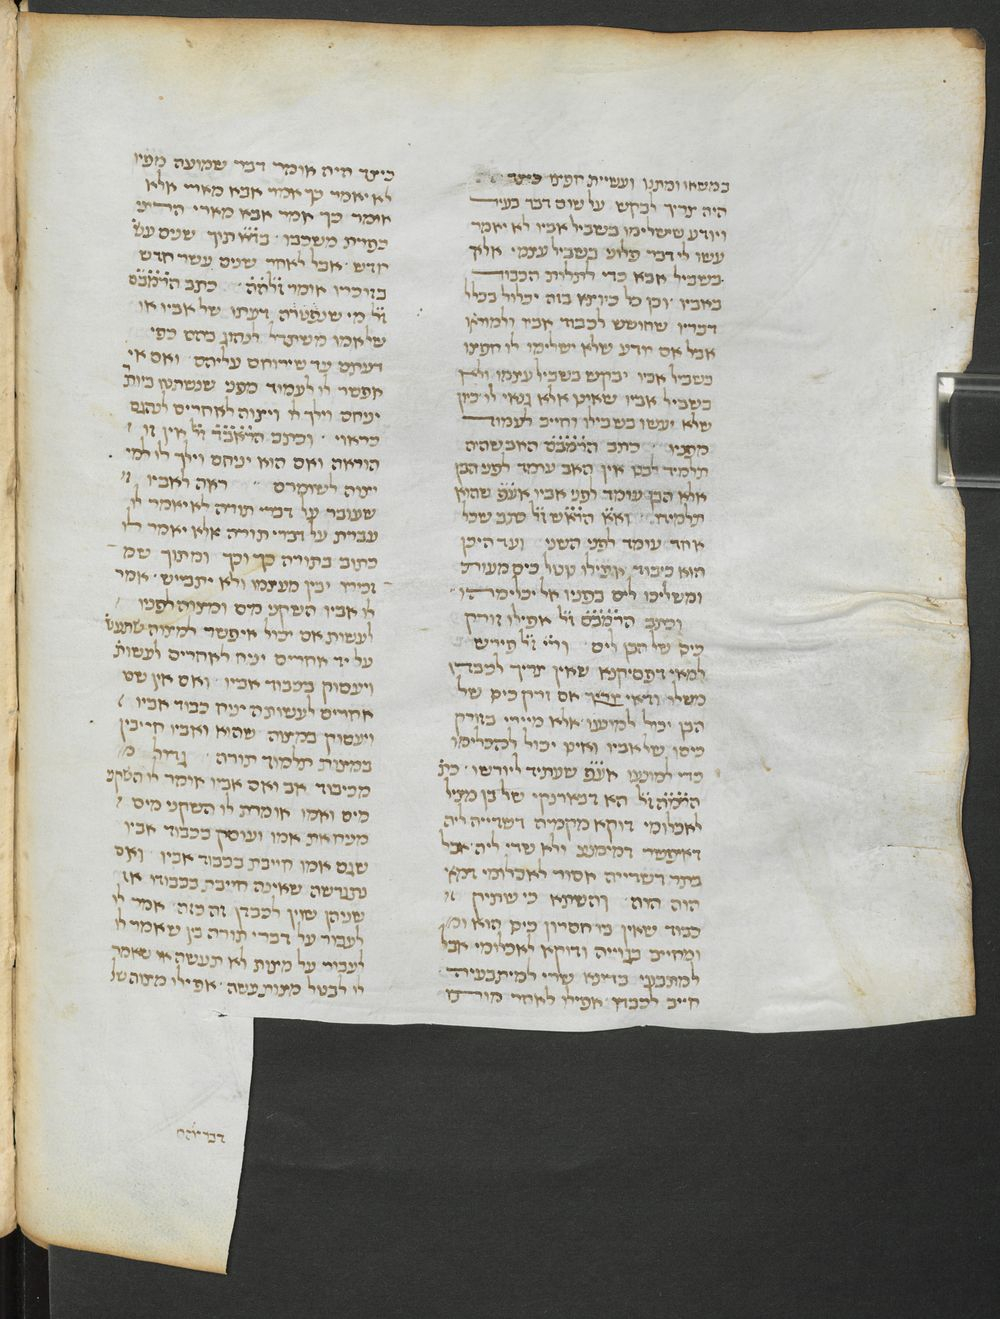 במשאו ומתנו ועשיית חפצו כיצד
היה צריך לבקש על שום דבר בעיר
ויודע שישלימו בשביל אביו לא יאמר
עשו לי דבר פלוני בשביל עצמי אלא
בשביל אבא כדי לתלות הכבוד
באביו וכן כל כיוצא בזה יכלול בכלל
דבריו שחושש לכבוד אביו ולמוראו
אבל אם יודע שלא ישלימו לו חפצו
בשביל אביו יבקש בשביל עצמו ולא
בשביל אביו שאינו אלא גנאי לו כיון
שלא יעשו בשבילו וחייב לעמוד
מפניו כתב הרמב״ם האב שהיה
תלמיד לבנו אין האב עומד לפני הבן
אלא הבן עומד לפני אביו אע״פ שהוא
תלמידו וא״א הרא״ש ז״ל כתב שכל
אחד עומד לפני השני ועד היכן
הוא כיבוד אפילו נטל כיס מעות
ומשליכו לים בפניו אל יכלימהו
וכתב הרמב״ם ז״ל אפילו זורק
כיס של הבן לים ור״י ז״ל פירש
למאי דפסיקנא שאין צריך לכבדו
משלו ודאי אם זרק כיס של
הבן יכול למונעו אלא מיירי בזורק
כיסו של אביו ואינו יכול להכלימו
כדי למונעו אע״פ שעתיד ליורשו כת׳
הרמ״ה ז״ל הא דבארנקי של בן מציל
לאכלומי דוקא מקמיה דשדייה ליה
דאיפשר דמימנע ולא שדי ליה אבל
בתר דשדייה אסור לאכלומי דמאי
הוה הוה והשתא כי שתיק
כבוד שאין בו חסרון כיס הוא
ומחייב בגוייה ודוקא לאכלומי אבל
למתבעי בדינא שרי למיתבעיה
חייב לכבדו אפילו לאחר מותו
כיצד היה אומר דבר שמועה מפיו
לא יאמר כך אמר אבא מארי אלא
אומר כך אמר אבא מארי הריני
כפרת משכבו בד״א תוך שנים עש׳
חדש אבל לאחר שנים עשר חדש
בזוכרו אומר ז״לה״ה כתב הרמב״ם
ז״ל מי שנטרפה דעתו של אביו או
של אמו משתדל לנהוג בהם כפי
דעתם עד שירוחם עליהם ואם אי
אפשר לו לעמוד מפני שנשתטו ביותר
יניחם וילך לו ויצוה לאחרים לנהגם
כראוי וכתב הראב״ד ז״ל אין זו
הוראה ואם הוא יניחם וילך לו למי
יצוה לשומרם ראה לאביו
שעובר על דברי תורה לא יאמר לו
עברת על דברי תורה אלא יאמר לו
כתוב בתורה כך וכך ומתוך
יבין מעצמו ולא יתבייש אמר
לו אביו השקני מים ומצוה לפניו
לעשות אם יכול איפשר למצוה שתעש׳
על יד אחרים יניח לאחרים לעשות
ויעסוק בכבוד אביו ואם אין שם
אחרים לעשותה יניח כבוד אביו
ויעסוק במצוה שהוא ואביו חייבין
במצות תלמוד תורה גדול
מכיבוד אב ואם אביו אומר לו השקני
מים ואמו אומרת לו השקני מים
מניח את אמו ועוסק בכבוד אביו
שגם אמו חייבת בכבוד אביו ואם
נתגרשה שאינה חייבת בכבודו אז
שניהן שוין לכבדן זה כזה אמר לו
לעבור על דברי תורה בין שאמר לו
לעבור על מצות לא תעשה או שאמר
לו לבטל מצות עשה אפילו מצוה של
דבריהם